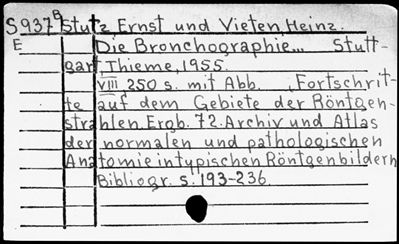 S937B Stutz Ernst und Vieten, Heinz.
E Die Bronchographie... Stutt-
gart Thieme, 1955.
VIII, 250 s. mit Abb. (Fortschrit-
te auf dem Gebiete der Röntgen-
strahlen. Ergb. 72. Archiv und Atlas
der normalen und pathologischen
Anatomie in typischen Röntgenbildern
Bibliogr. s. 193-236.